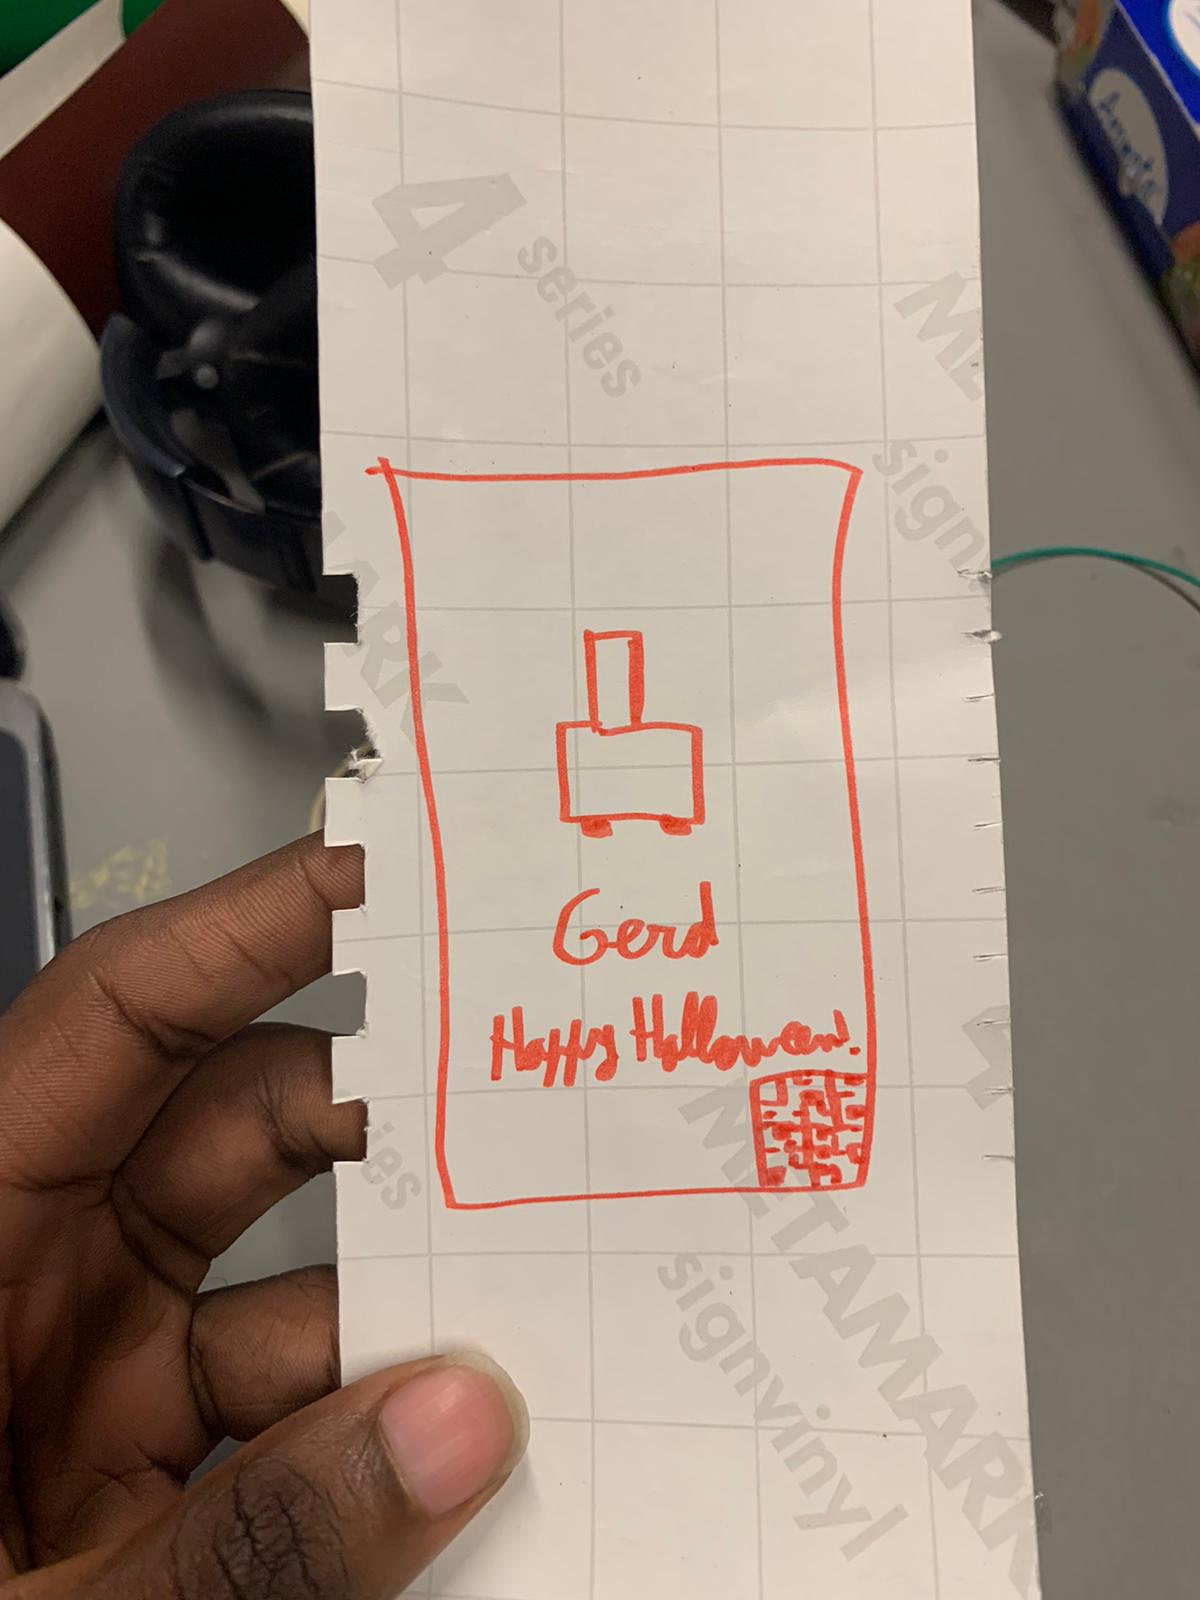 4
series
ME
signv
ARK
Gerd
Happy Halloween!
4
ies
METAMARK
signvinyl